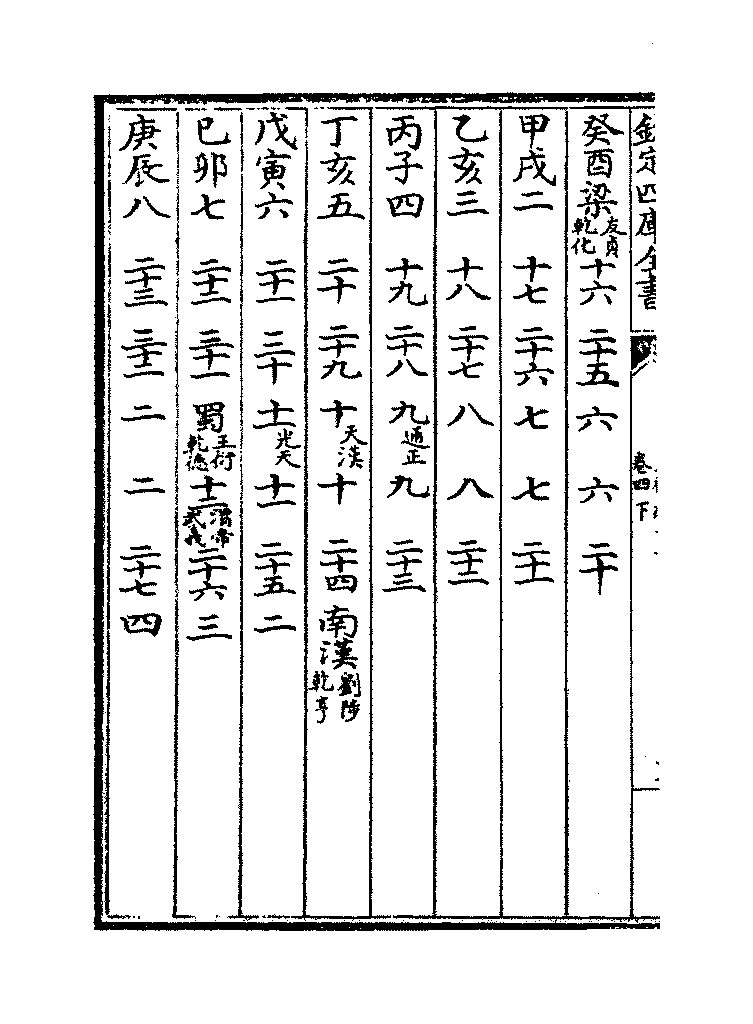 欽定四庫全書
卷四下
癸酉梁友貞乾化十六 二十五 六 六 二十
甲戌二 十七 二十六 七 七 二十一
乙亥三 十八 二十七 八 八 二十二
丙子四 十九 二十八 九通正 九 二十三
丁亥五 二十 二十九 十天漢 十 二十四 南漢劉陟乾亨
戊寅六 二十一 三十 十一光天 十一 二十五 二
已卯七 二十二 三十一 蜀王衍乾德 十二渭帝武義 二十六 三
庚辰八 二十三 三十二 二 二 二十七 四